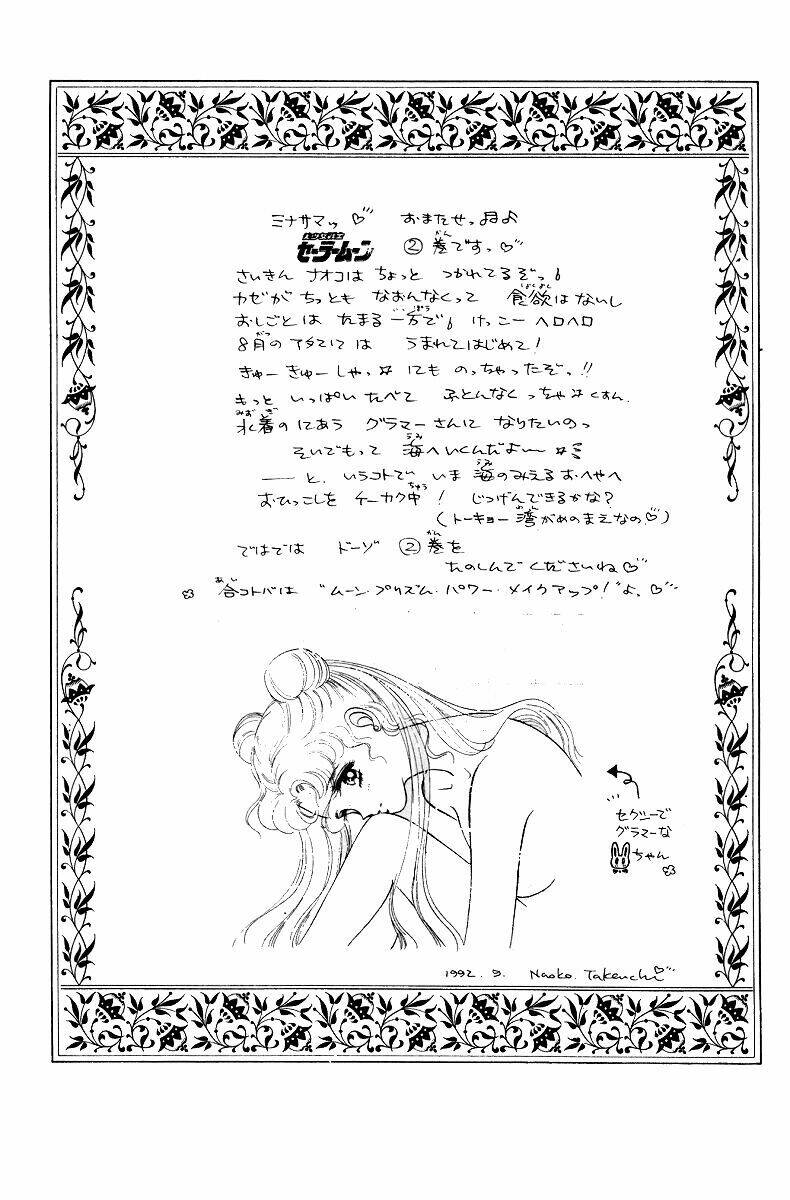 ミナサマッ♡ おまたせっ♬♪
美少女戦士
セーラームーン ②巻ですっ♡
さいきん ナオコは ちょっと つかれてるぞっ!
カゼが ちっとも なおんなくって 食欲はないし
おしごとは たまる一方で! けっこー ヘロヘロ
8月のアタマには うまれてはじめて!
きゅーきゅーしゃっ☆にも のっちゃったぞっ!!
もっと いっぱい たべて ふとんなくっちゃ☆くすん
水着のにあう グラマーさんに なりたいのっ
そいでもって 海へいくんだよ〜☆ミ
――と、いうコトで いま 海のみえるおへやへ
おひっこしを チーカク中! じつげんできるかな?
(トーキョー湾がめのまえなの♡)
ではでは ドーゾ ②巻を
たのしんでくださいね♡
合コトバは "ムーン・プリズム・パワー・メイクアップ!"よ。♡
セクシーで
グラマーな
ちゃん
1992. 9. Naoko. Takeuchi♡